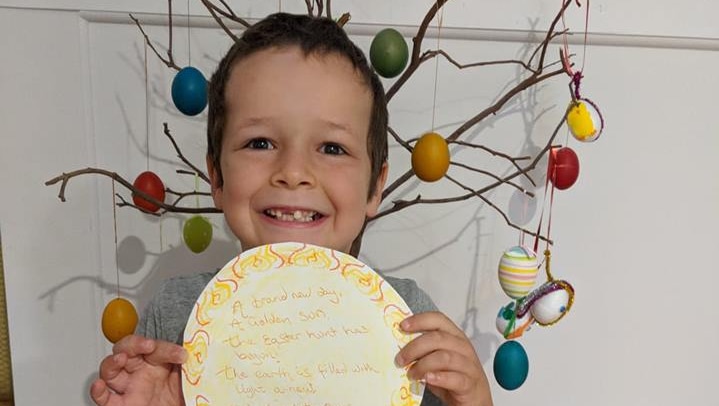 A brand new day,
A golden sun,
the Easter hunt has
begun!
the earth is filled with
light anew!